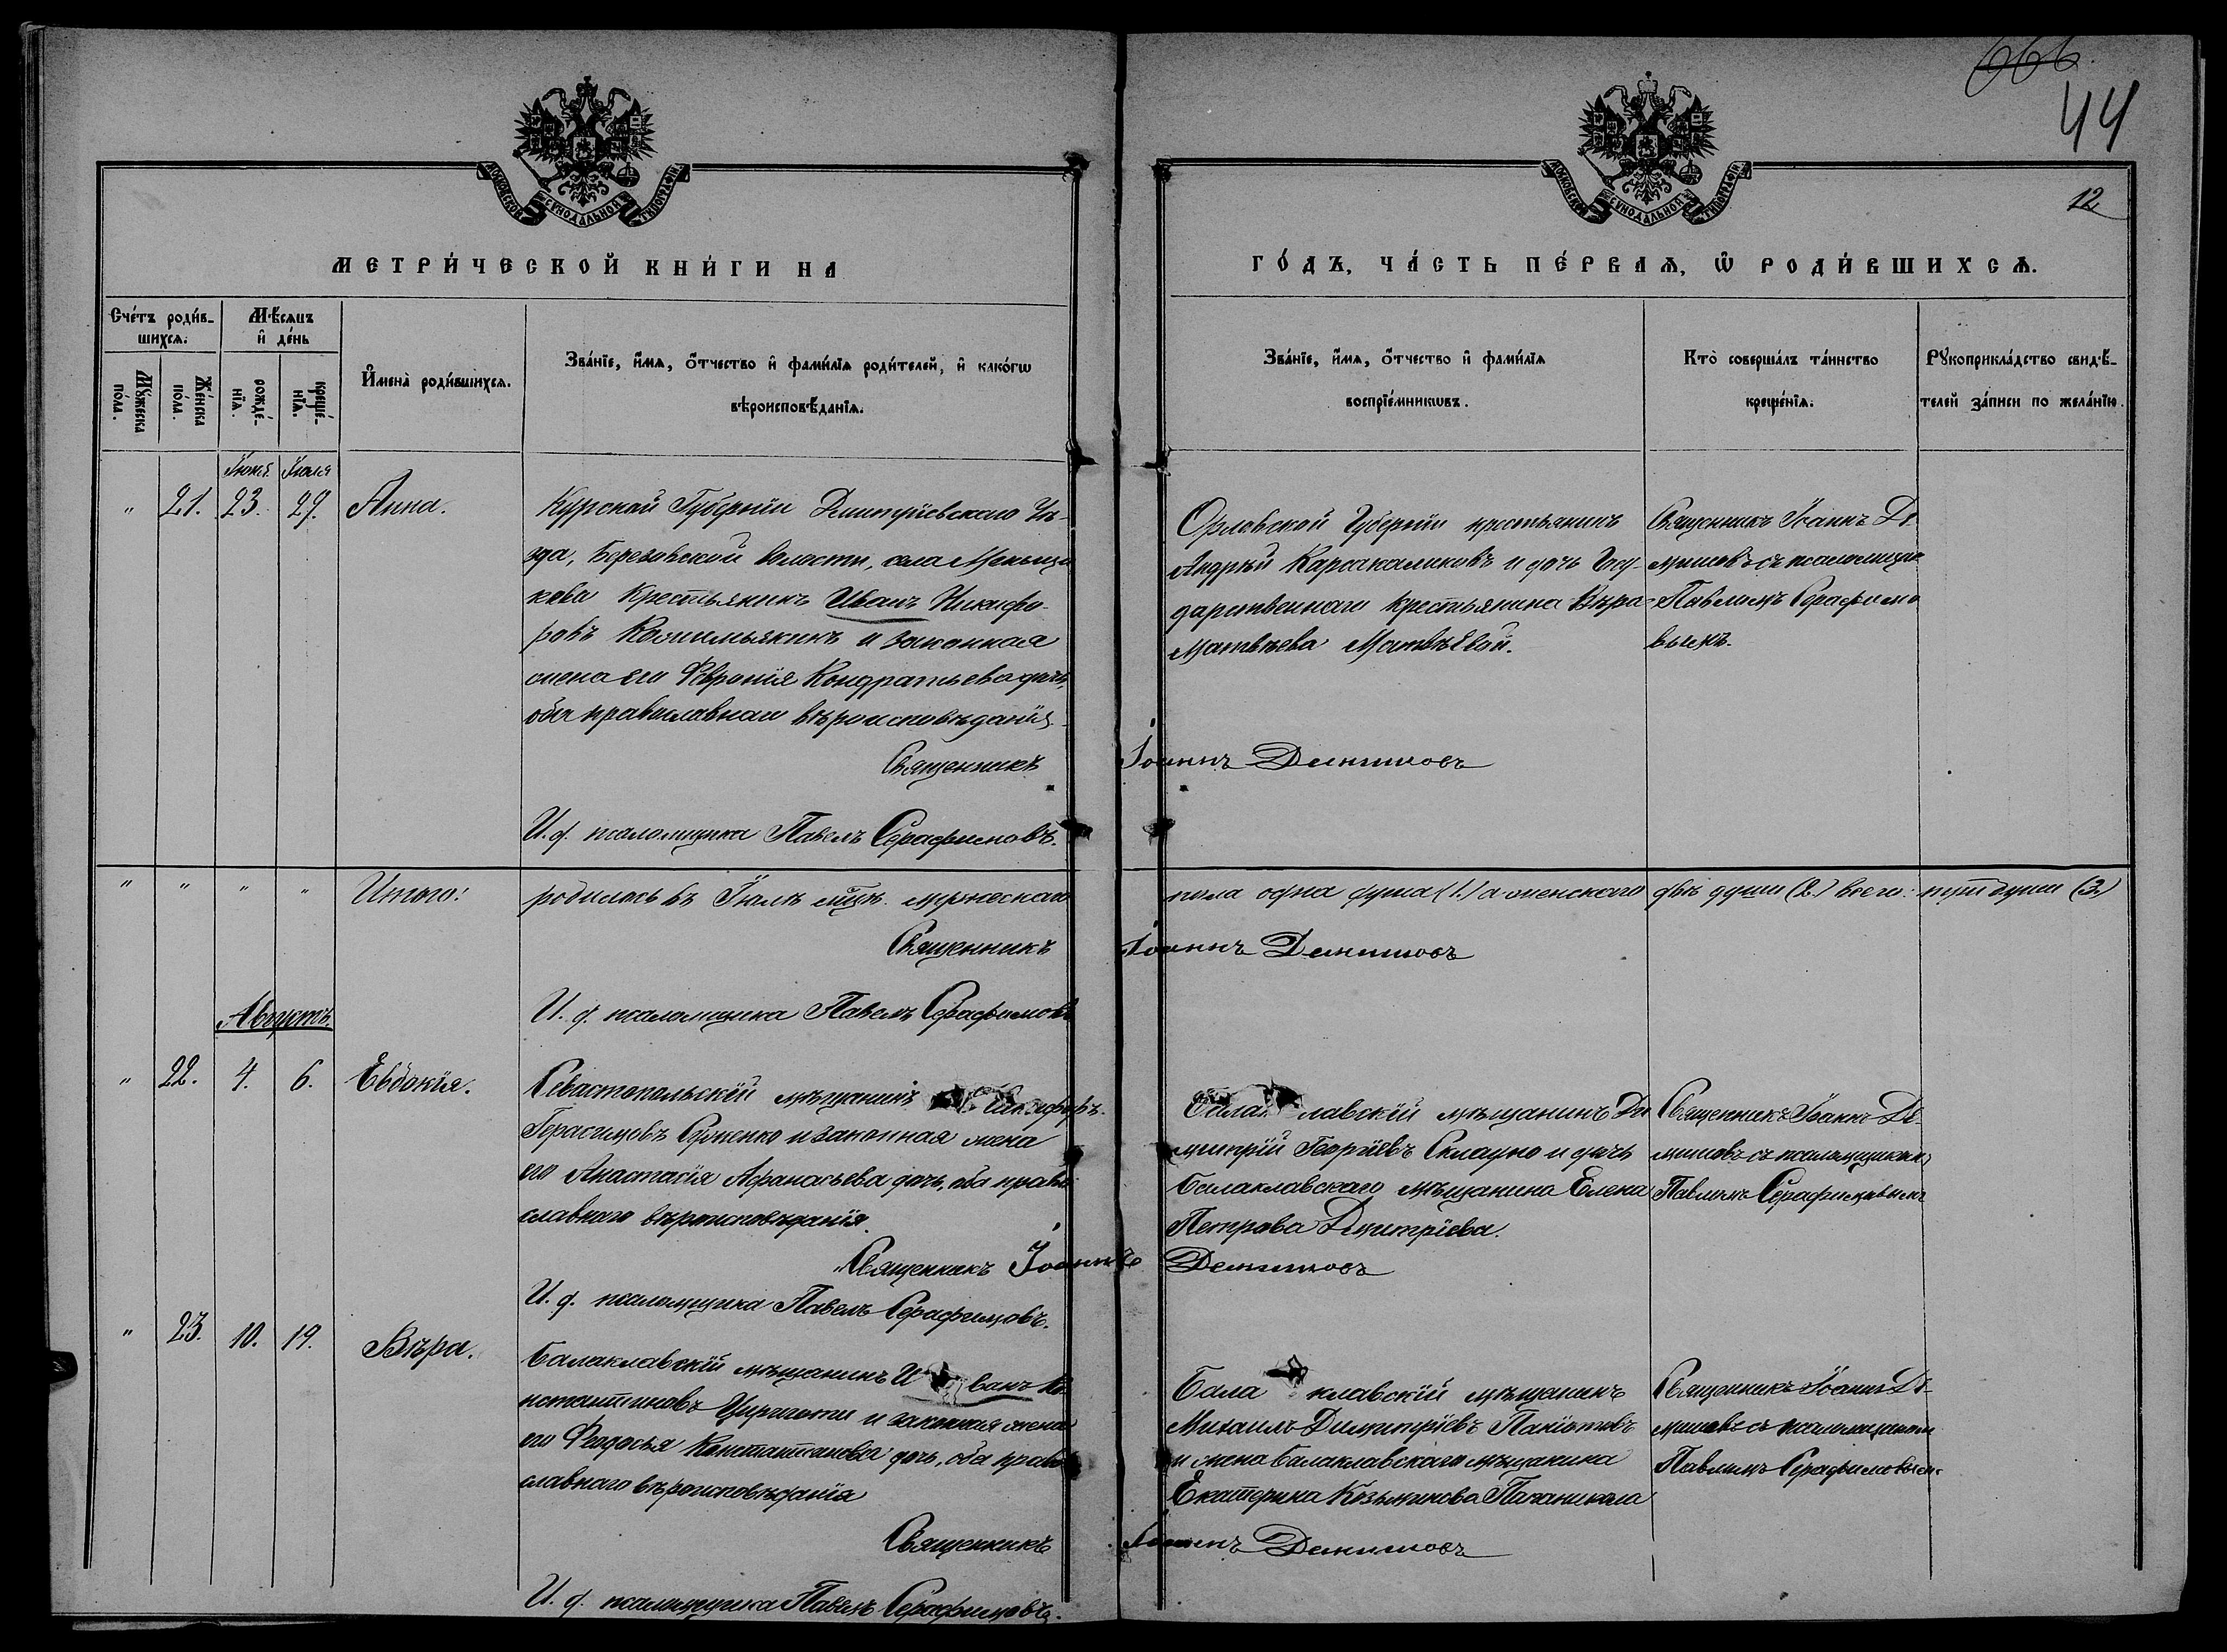 666.
44
12
МОСКОВСКОЙ СѴНОДАЛЬНОЙ ТИПОГРАФІИ
МОСКОВСКОЙ СѴНОДАЛЬНОЙ ТИПОГРАФІИ
МЕТРИ́ЧЕСКОЙ КНИ́ГИ НА
ГО́ДЪ, ЧА́СТЬ ПЕ́РВАѦ, Ѡ҆ РОДИ́ВШИХСѦ.
Сче́тъ роди́в-
шихсѧ.
Мѣ́сѧцъ
и҆ де́нь
Мꙋ́жеска по́ла.
Же́нска по́ла.
рожде́-нїѧ.
креще́-нїѧ.
И҆мена̀ роди́вшихсѧ.
Зва́нїе, и҆́мѧ, ѻ҆́тчество и҆ фами́лїѧ роди́телей, и҆ како́гѡ
вѣроисповѣ́данїѧ.
Зва́нїе, и҆́мѧ, ѻ҆́тчество и҆ фами́лїѧ
воспрїе́мникѡвъ.
Кто̀ соверша́лъ та́инство
креще́нїѧ.
Рꙋкоприкла́дство свидѣ́-
телей за́писи по жела́нїю.
Іюня Іюля
" 21. 23. 29. Анна.
Курской Губерніи Дмитріевскаго Уѣ-
зда, Березовской волости, села Меньщи
кова Крестьянинъ Иванъ Никифо-
ровъ и законная
жена его Феронія Кондратьева дочь,
оба православнаго вѣроисповѣданія.
Священникъ Іоаннъ Демишовъ
И. д. псаломщика Павелъ Серафимовъ.
Орловской Губерніи крестьянинъ
Андрей и дочь Госу-
дарственнаго крестьянина Вѣра
Матвѣева Матвѣевой.
Священникъ Іоаннъ Де
мишовъ съ псаломщик
Павломъ Серафимо
вымъ.
" " " " Итого: родилось въ Іюлѣ мцѣ. мужескаго пола одна душа (1.) а женскаго двѣ души (2.) всего: три души (3.)
Священникъ Іоаннъ Демишовъ
И. д. псаломщика Павелъ Серафимовъ
Августъ.
" 22. 4. 6. Евдокія.
Севастопольскій мѣщанинъ Никифоръ
Герасимовъ и законная жена
его Анастасія Афанасьева дочь, оба право
славнаго вѣроисповѣданія.
Священникъ Іоаннъ Демишовъ
И. д. псаломщика Павелъ Серафимовъ.
Бала лавскій мѣщанинъ Ди
митрій Георгіевъ и дочь
Балаклавскаго мѣщанина Елена
Петрова Дмитріева.
Священникъ Іоаннъ Де-
мишовъ съ псаломщикомъ
Павломъ Серафимовымъ
" 23. 10. 19. Вѣра.
Балаклавскій мѣщанинъ И ванъ Ко
нстантиновъ Цириготи и законная жена
его Феодосья Константинова дочь, оба право
славнаго вѣроисповѣданія
Священникъ Іоаннъ Демишовъ
И. д. псаломщика Павелъ Серафимовъ.
Бала клавскій мѣщанинъ
Михаилъ Димитріевъ
и жена Балаклавскаго мѣщанина
Екатерина Козьминова Папаникола
Священникъ Іоаннъ Де-
мишовъ съ псаломщикомъ
Павломъ Серафимовым.